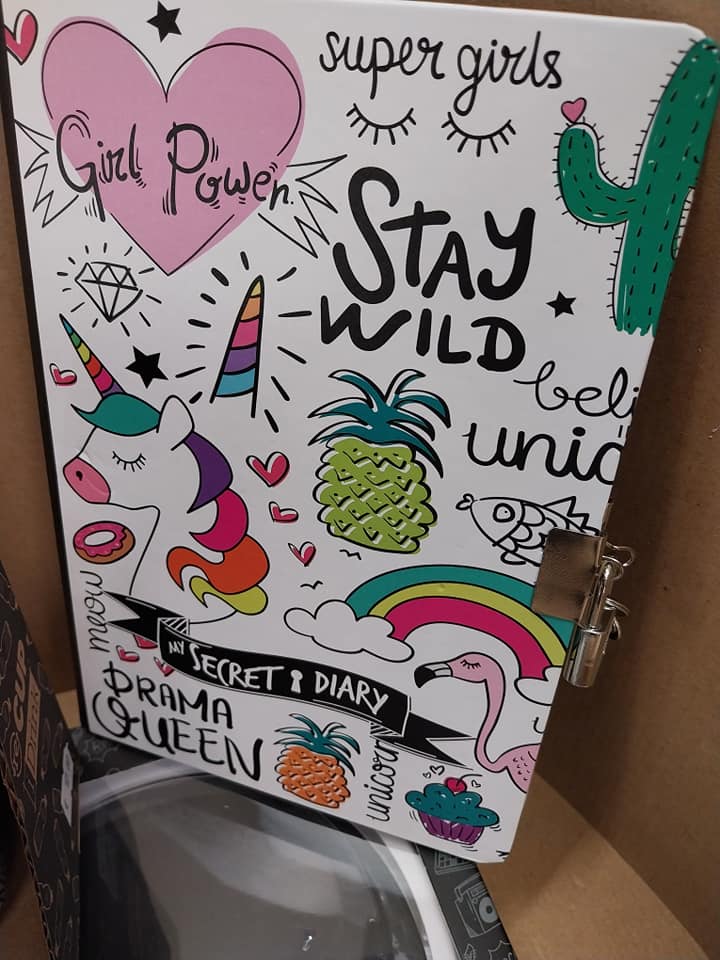 super girls
Girl Power
STAY
WILD
beli
unic
meow
MY SECRET DIARY
DRAMA
QUEEN
unicorn
CUP
Drink